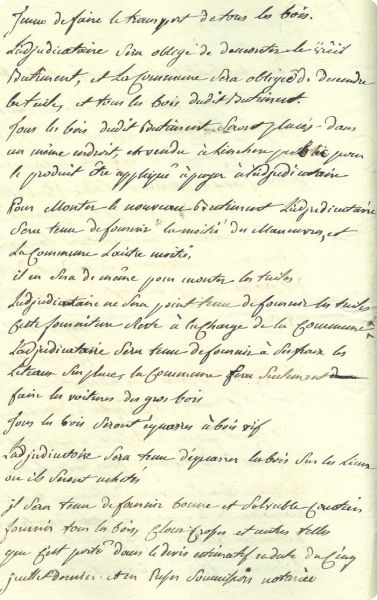 tenu de faire le transport de tous les bois.
L'adjudicataire sera obligé de demonter le vieil
Batiment, et la Commune sera obligée de descendre
les tuiles, et tous les bois dudit Batiment.
Tous les bois dudit Batiment seront places dans
un même endroit, et vendu a l'enchere public pour
le produit être appliqué à payer l'adjudicataire
Pour Monter le nouveau Batiment L'adjudicataire
sera tenu de fournir la moitié des Manœuvres, et
la Commune l'autre moitié.
il en sera de même pour monter les tuiles
L'adjudicataire ne sera point tenu de fournir les tuiles
cette fourniture reste à la Charge de la Commune
L'adjudicataire sera tenu de fournir à ses frais les
sur place, la Commune fera seulement
faire les voitures des gros bois
Tous les bois seront équarres à bois vif
L'adjudicataire sera tenu d'equarrer les bois sur les lieux
ou ils seront achetés
il sera tenu de fournir bonne et solvable Caution
fournir tous les bois, Clous et autres telles
que c'est porté dans le devis estimatif en date du Cinq
juillet dernier. soumission